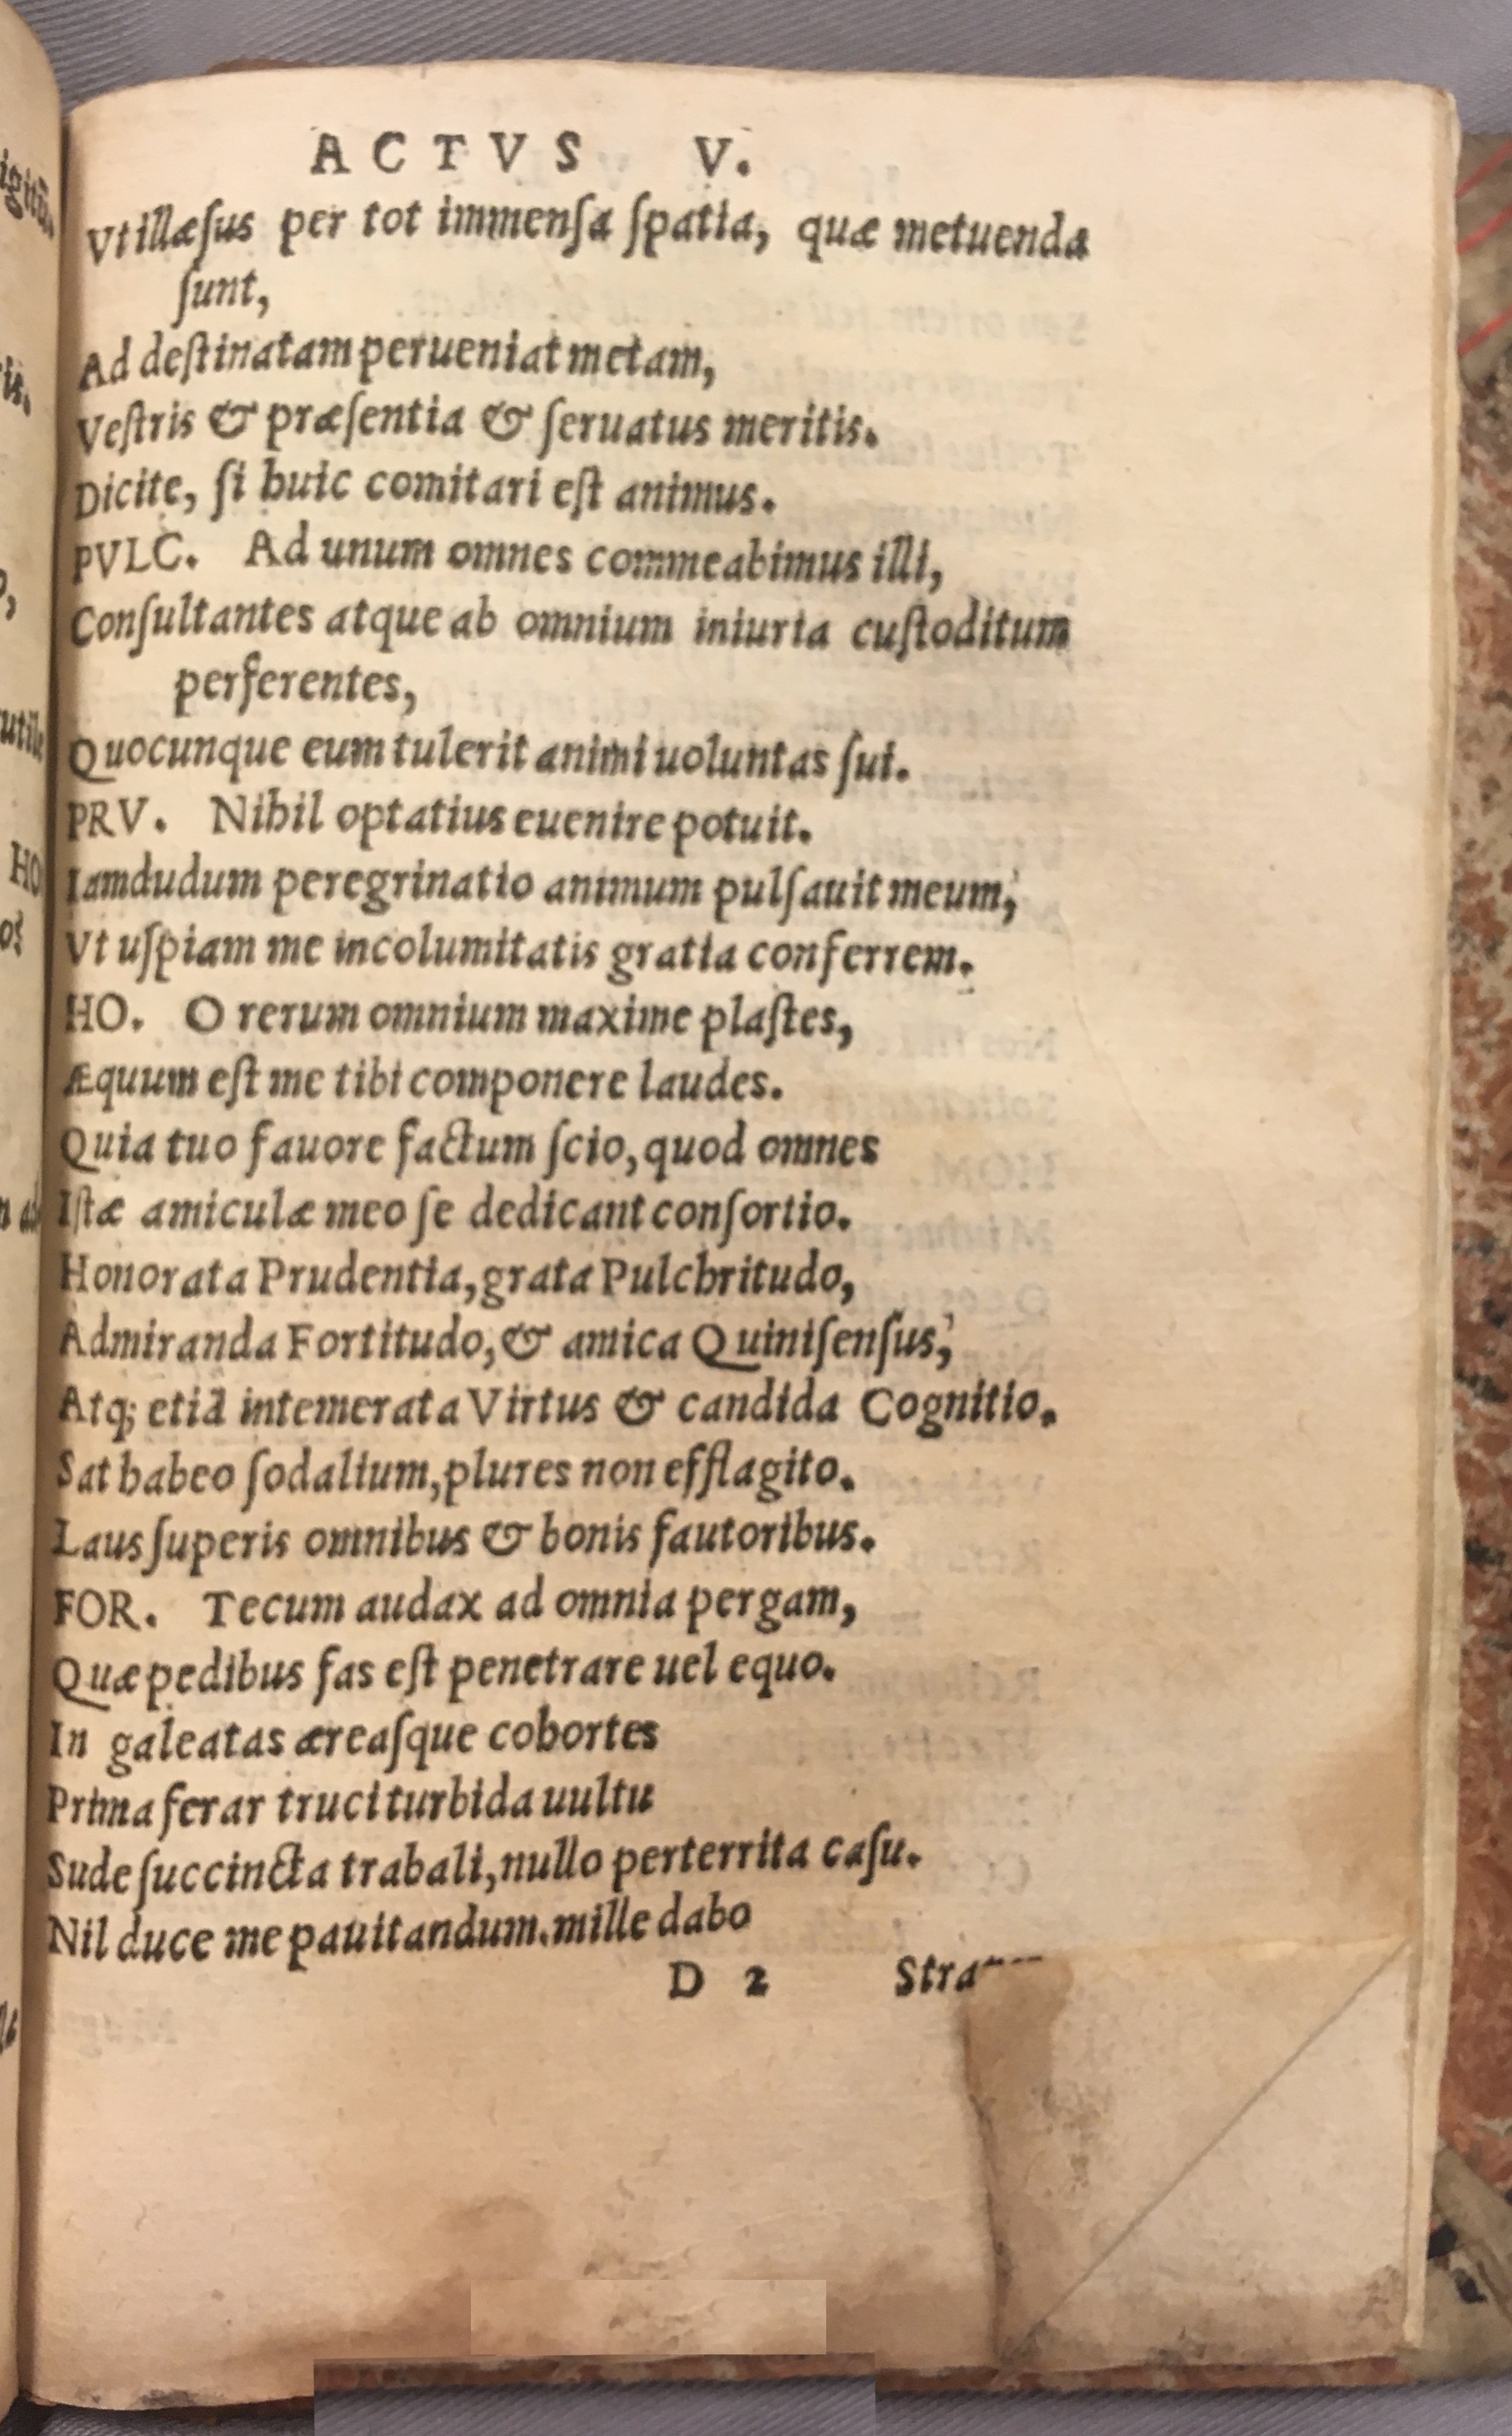 ACTVS V.
Vt illæſus per tot immenſa ſpatia, quæ metuenda
ſunt,
Ad deſtinatam perueniat metam,
Veſtris & præſentia & ſeruatus meritis.
Dicite, ſi huic comitari eſt animus.
PVLC. Ad unum omnes commeabimus illi,
Conſultantes atque ab omnium iniuria cuſtoditum
perferentes,
Quocunque eum tulerit animi uoluntas ſui.
PRV. Nihil optatius euenire potuit.
Iamdudum peregrinatio animum pulſauit meum,
Vt uſpiam me incolumitatis gratia conferrem.
HO. O rerum omnium maxime plaſtes,
Æquum eſt me tibi componere laudes.
Quia tuo fauore factum ſcio, quod omnes
Iſtæ amiculæ meo ſe dedicant conſortio.
Honorata Prudentia, grata Pulchritudo,
Admiranda Fortitudo, & amica Quiniſenſus,
Atq; etiã intemerata Virtus & candida Cognitio.
Sat habeo ſodalium, plures non efflagito.
Laus ſuperis omnibus & bonis fautoribus.
FOR. Tecum audax ad omnia pergam,
Quæ pedibus fas eſt penetrare uel equo.
In galeatas æreaſque cohortes
Prima ferar truci turbida uultu
Sude ſuccincta trabali, nullo perterrita caſu.
Nil duce me pauitandum. mille dabo
D 2
HO